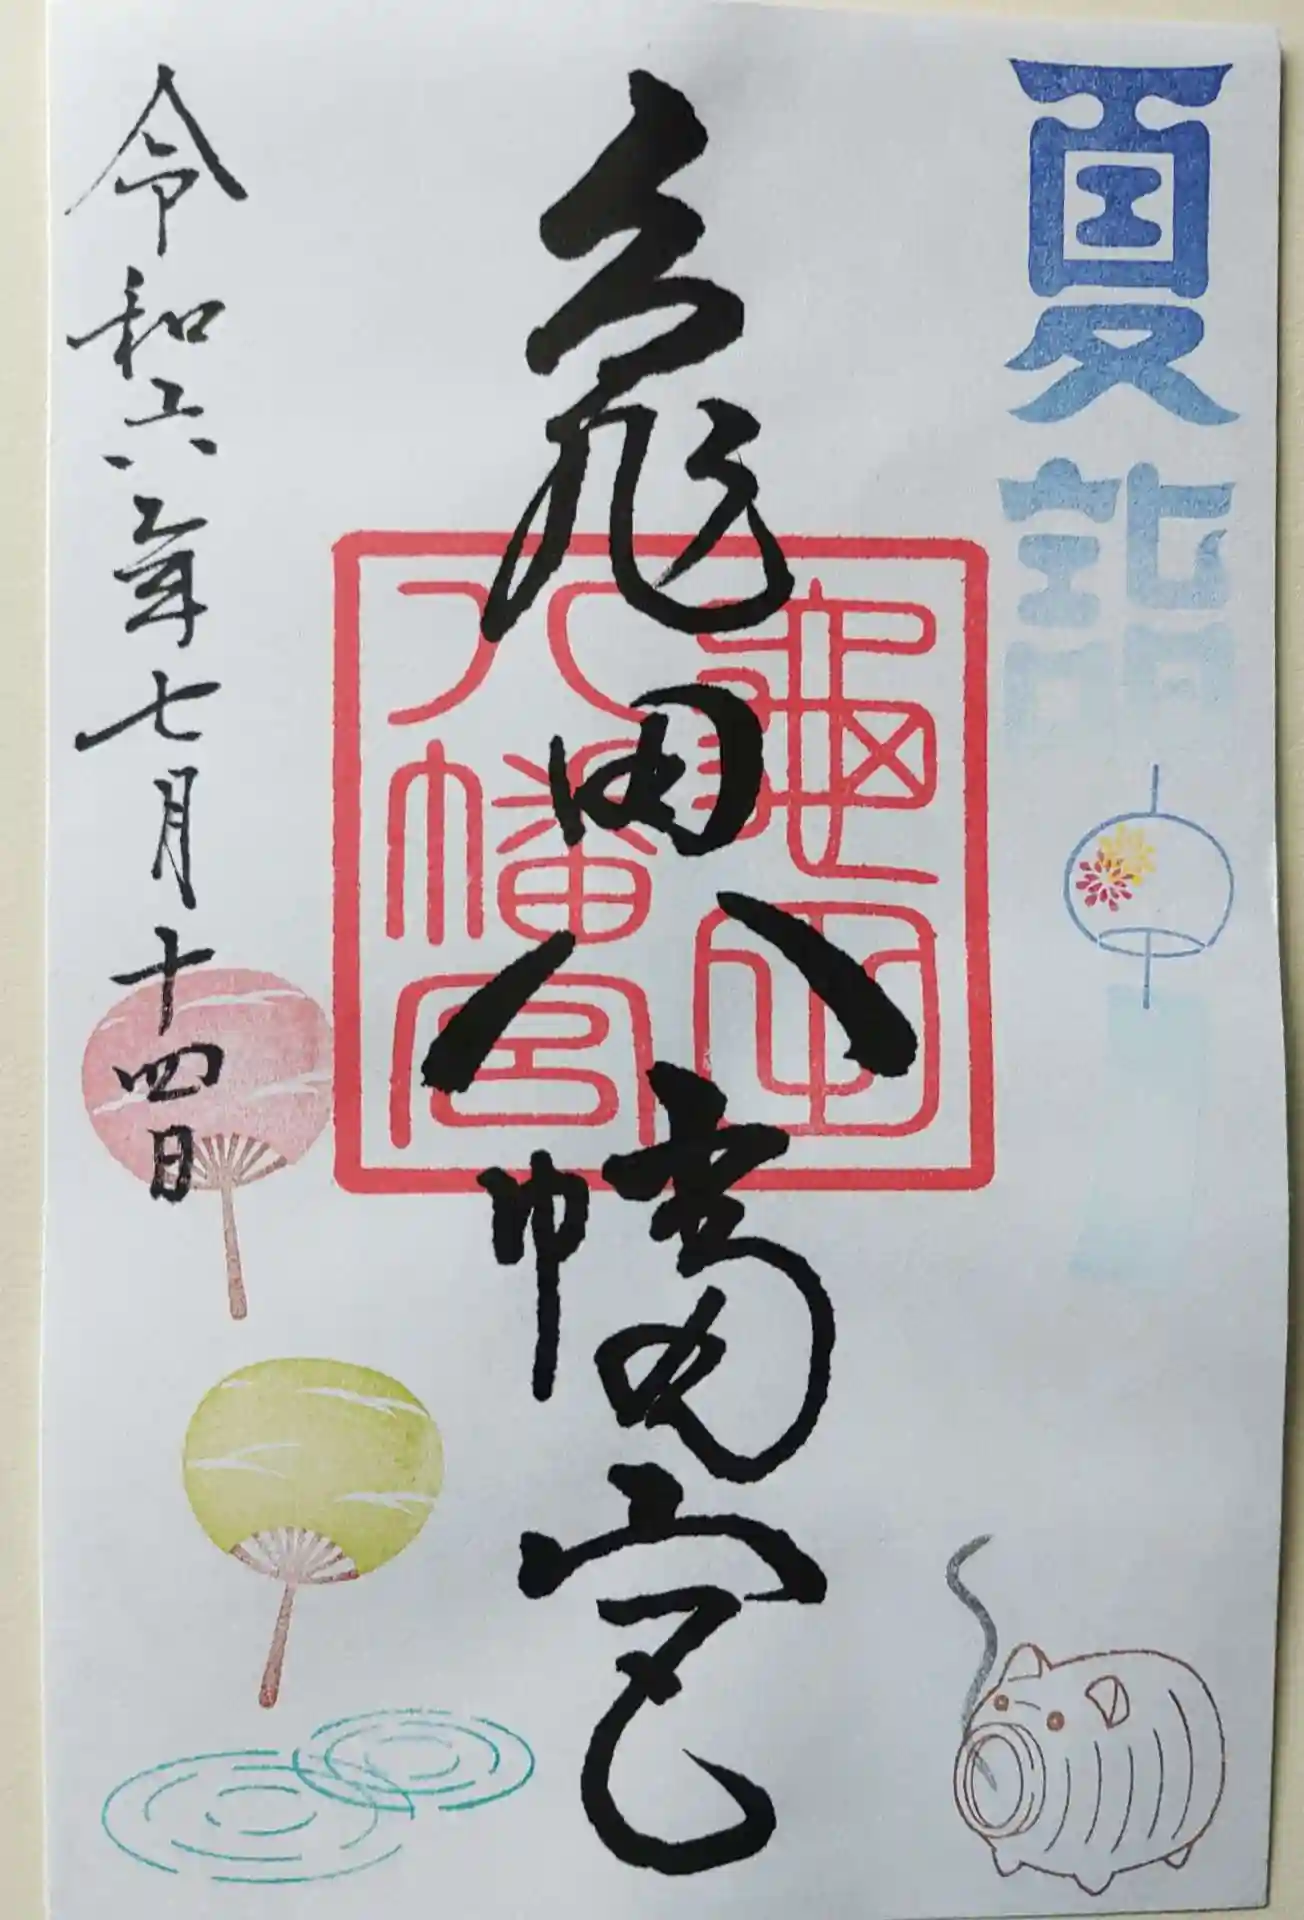 夏詣
亀田八幡宮
亀田
八幡宮
令和六年七月十四日